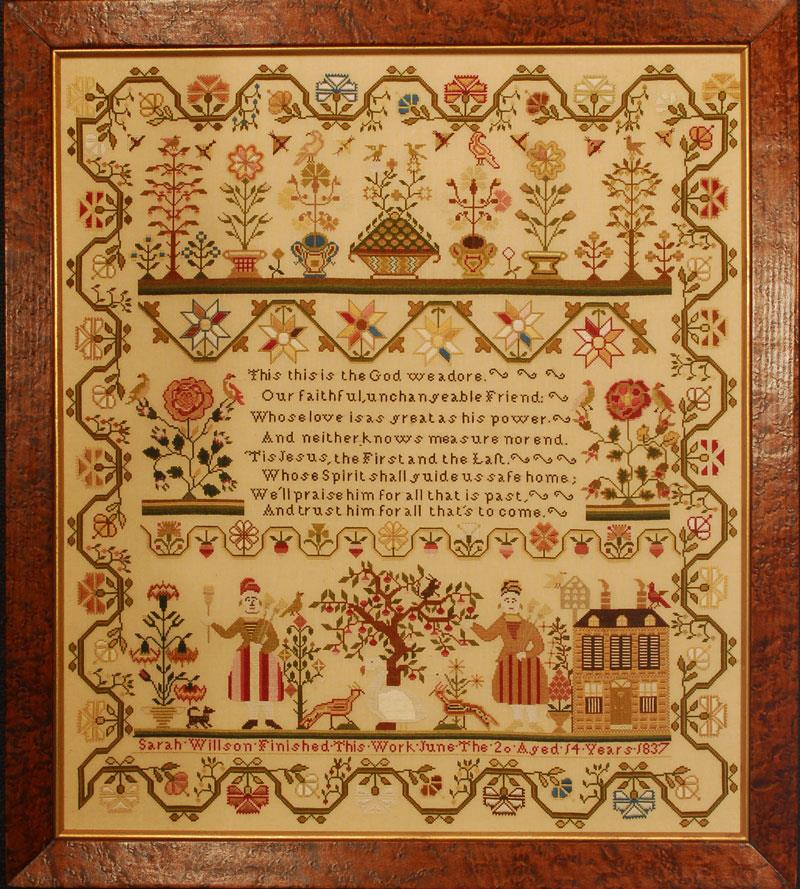 This this is the God we adore.
Our faithful, unchangeable Friend:
Whose love is as great as his power.
And neither knows measure nor end.
'Tis Jesus, the First and the Laſt.
Whose Spirit shall guide us safe home;
We'll praise him for all that is past,
And trust him for all that's to come.
Sarah·Willson·Finished·This·Work·June·The·20·Aged·14·Years·1837